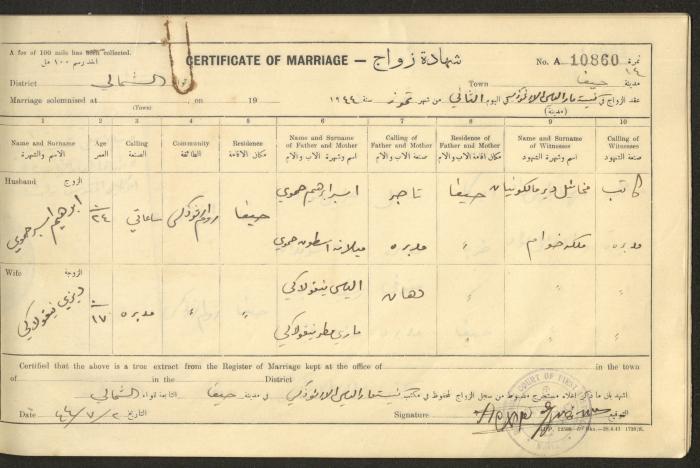 A fee of 100 mils has been collected.
اخذ رسم ١٠٠ مل
CERTIFICATE OF MARRIAGE — شهادة زواج
No. A 10860 نمرة
District الشمالي
Town حيفا مدينة
Marriage solemnised at , on 19
(Town)
عقد الزواج في اليوم الثاني من شهر تموز سنة ١٩٤٤
(مدينة)
1 2 3 4 5 6 7 8 9 10
Name and Surname
الاسم والشهرة
Age
العمر
Calling
الصنعة
Community
الطائفة
Residence
مكان الاقامة
Name and Surname of Father and Mother
اسم وشهرة الاب والام
Calling of Father and Mother
صنعة الاب والام
Residence of Father and Mother
مكان اقامة الاب والام
Name and Surname of Witnesses
اسم وشهرة الشهود
Calling of Witnesses
صنعة الشهود
Husband الزوج
ابراهيم اسبر حموي
٢٤
ساعاتي
روم ارثوذكس
حيفا
اسبر ابراهيم حموي
تاجر
حيفا
كاتب
ميلانه اسطون حموي
مدبره
〃
ملكه خوام
مدبره
Wife الزوجة
ديزي نيقولاكي
١٧
مدبره
〃
〃
الياس نيقولاكي
دهان
〃
〃
ماري نيقولاكي
〃
〃
Certified that the above is a true extract from the Register of Marriage kept at the office of in the town
of in the District
اشهد بان ما ذكر اعلاه مستخرج مضبوط من سجل الزواج المحفوظ في مكتب في مدينة حيفا التابعة للواء الشمالي
Date ٤٤/٧/٢ التاريخ
Signature التوقيع
COURT OF FIRST